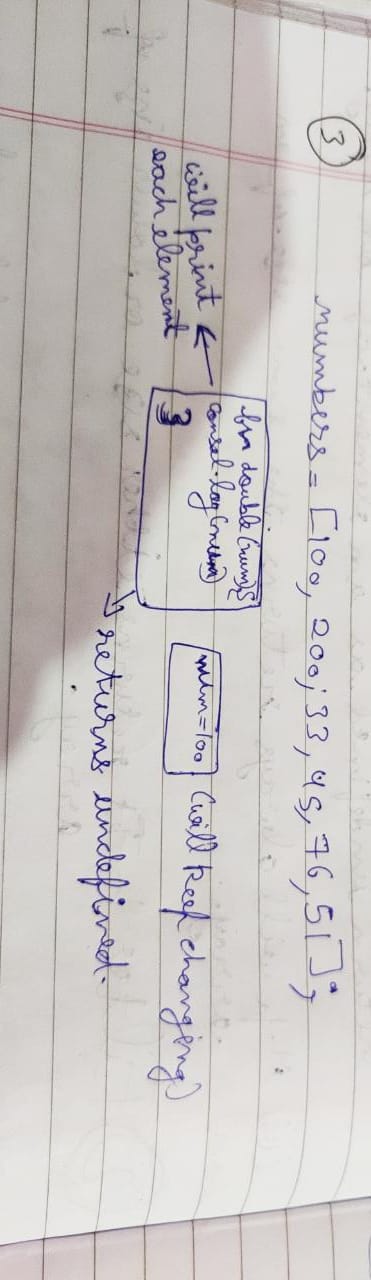 3
numbers = [100, 200, 33, 45, 76, 51];
fn double(num){
consol.log(num)
}
will print
each element
num=100
(will keep changing)
returns undefined.